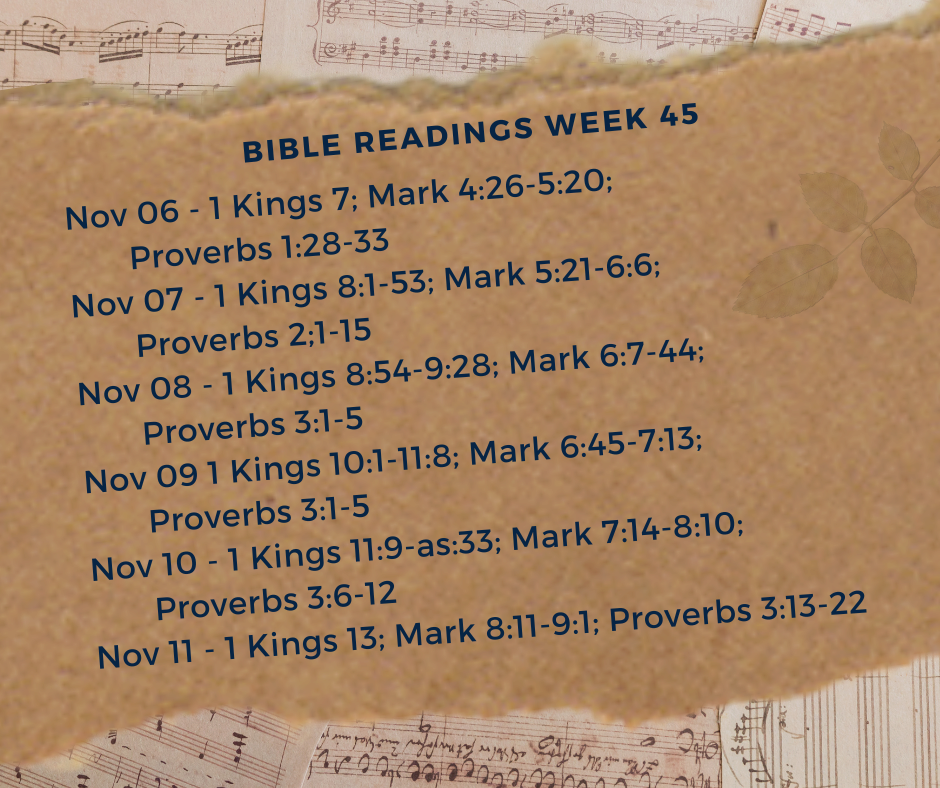 BIBLE READINGS WEEK 45
Nov 06 - 1 Kings 7; Mark 4:26-5:20;
Proverbs 1:28-33
Nov 07 - 1 Kings 8:1-53; Mark 5:21-6:6;
Proverbs 2;1-15
Nov 08 - 1 Kings 8:54-9:28; Mark 6:7-44;
Proverbs 3:1-5
Nov 09 1 Kings 10:1-11:8; Mark 6:45-7:13;
Proverbs 3:1-5
Nov 10 - 1 Kings 11:9-as:33; Mark 7:14-8:10;
Proverbs 3:6-12
Nov 11 - 1 Kings 13; Mark 8:11-9:1; Proverbs 3:13-22